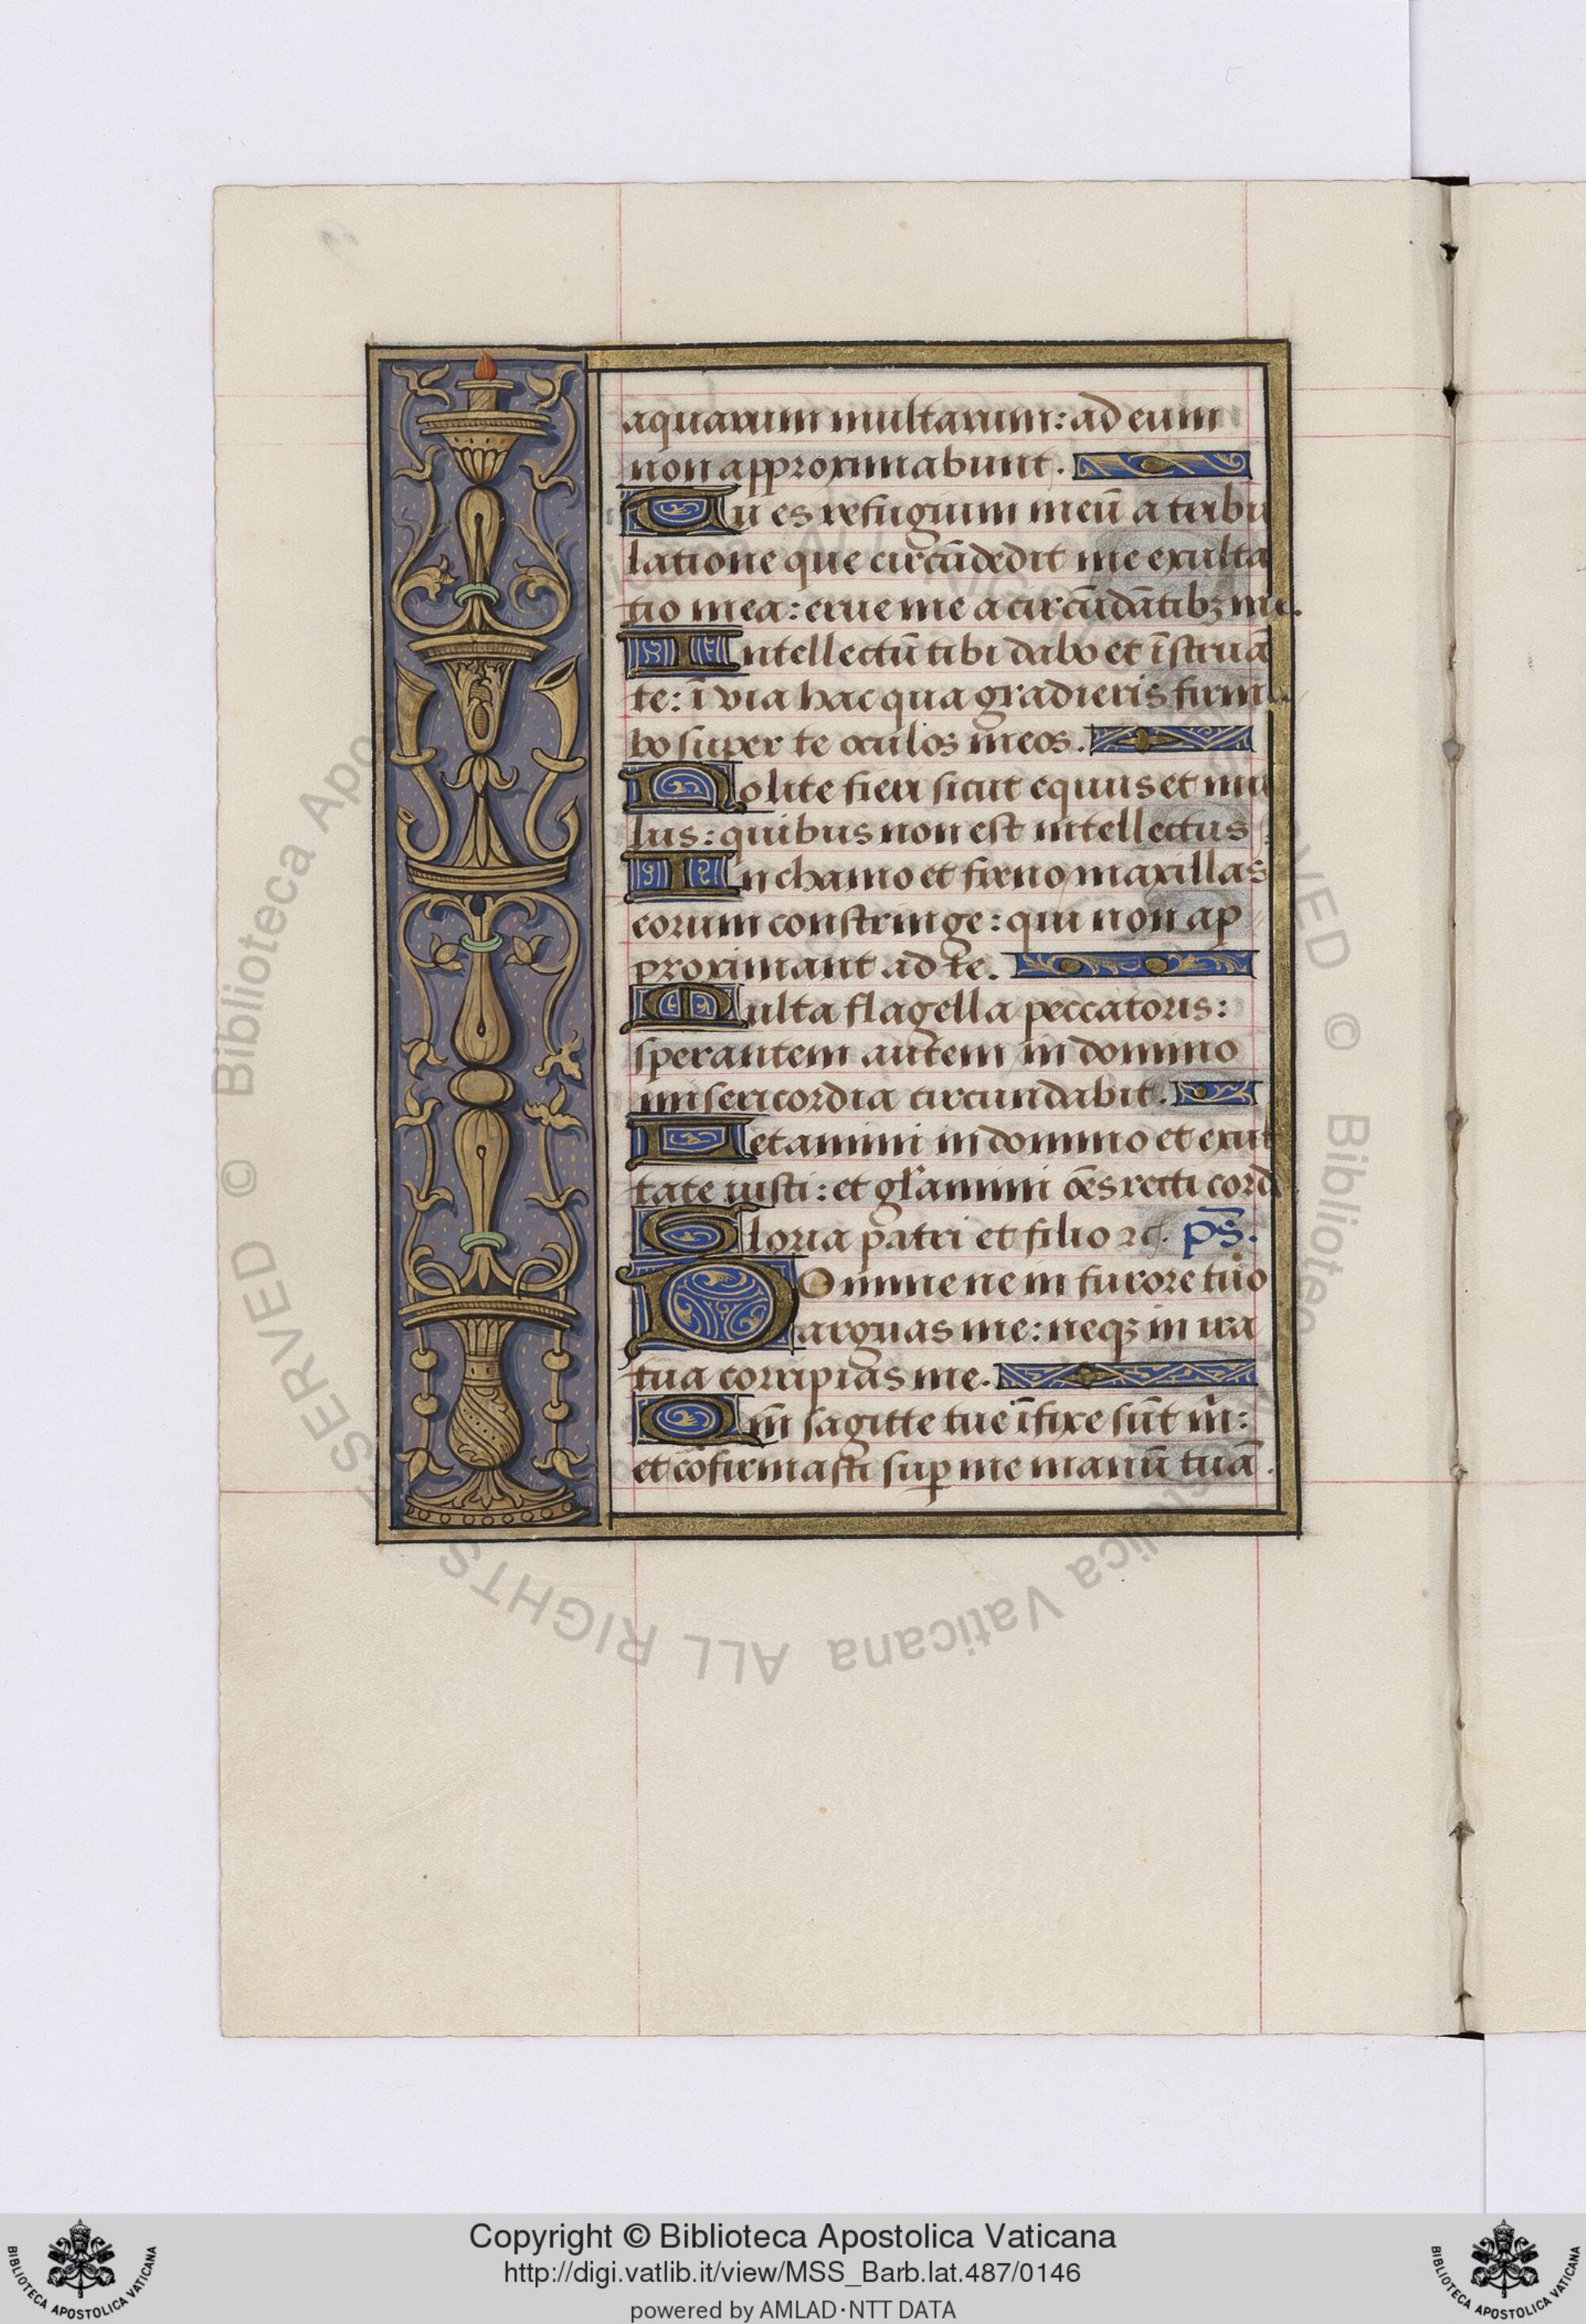 aquarum multarum: ad eum
non approximabunt.
Tu es refugium meū a tribu
latione que circūdedit me exulta
tio mea: erue me a circūdātibꝫ me.
Intellectū tibi dabo et īstruā
te: ī via hac qua gradieris firma
bo super te oculos meos.
Nolite fieri sicut equus et mu
lus: quibus non est intellectus
In chamo et freno maxillas
eorum constringe: qui non ap
proximant ad te.
Multa flagella peccatoris:
sperantem autem in domino
misericordia circundabit.
Letamini in domino et exul
tate iusti: et gl̄amini oēs recti cord
Gloria patri et filio ⁊c. p̄s.
Domine ne in furore tuo
arguas me: neqꝫ in ira
tua corripias me.
Qm̄ sagitte tue īfixe sūt m̄:
et cōfirmasti suꝑ me manū tuā.
Biblioteca Apostolica Vaticana ALL RIGHTS RESERVED ©
Copyright © Biblioteca Apostolica Vaticana
http://digi.vatlib.it/view/MSS_Barb.lat.487/0146
powered by AMLAD·NTT DATA
BIBLIOTECA APOSTOLICA VATICANA
BIBLIOTECA APOSTOLICA VATICANA